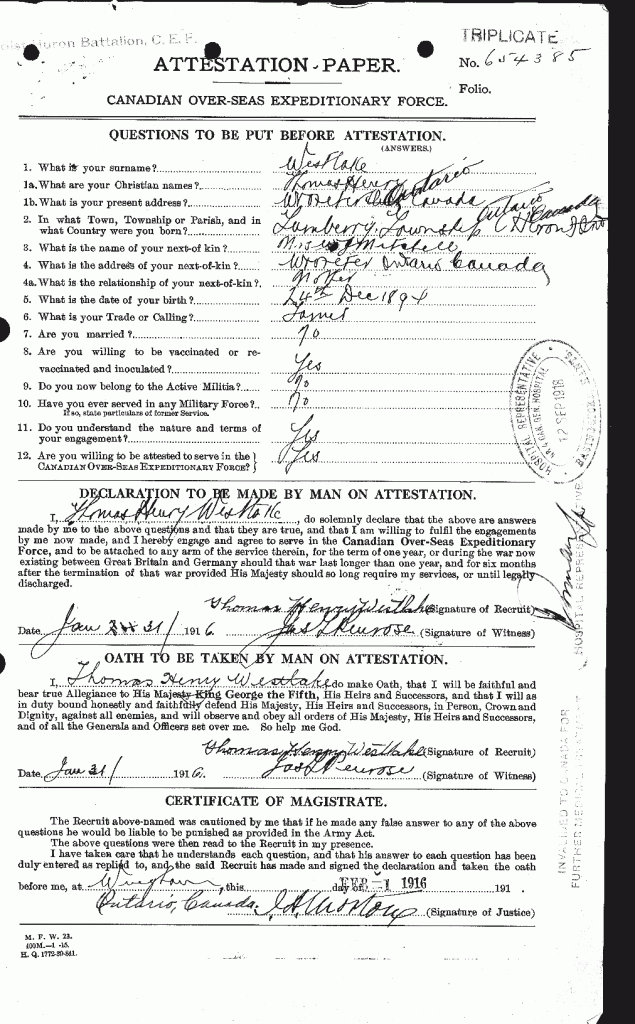 Huron Battalion, C. E. F.
TRIPLICATE
ATTESTATION PAPER.
No. 654385
Folio.
CANADIAN OVER-SEAS EXPEDITIONARY FORCE.
QUESTIONS TO BE PUT BEFORE ATTESTATION.
(ANSWERS.)
1. What is your surname? Westlake
1a. What are your Christian names? Thomas Henry
1b. What is your present address? Wroxeter Ontario Canada
2. In what Town, Township or Parish, and in
what Country were you born? Township Ontario Canada
3. What is the name of your next-of-kin? Mitchell
4. What is the address of your next-of-kin? Wroxeter Ontario Canada
4a. What is the relationship of your next-of-kin? Mother
5. What is the date of your birth? 24th Dec 1894
6. What is your Trade or Calling?
7. Are you married? No
8. Are you willing to be vaccinated or re-
vaccinated and inoculated? Yes
9. Do you now belong to the Active Militia? No
10. Have you ever served in any Military Force? No
If so, state particulars of former Service.
11. Do you understand the nature and terms of
your engagement? Yes
12. Are you willing to be attested to serve in the
CANADIAN OVER-SEAS EXPEDITIONARY FORCE? Yes
HOSPITAL REPRESENTATIVE
GEN. HOSPITAL
12 SEP 1918
DECLARATION TO BE MADE BY MAN ON ATTESTATION.
I, Thomas Henry Westlake, do solemnly declare that the above are answers
made by me to the above questions and that they are true, and that I am willing to fulfil the engagements
by me now made, and I hereby engage and agree to serve in the Canadian Over-Seas Expeditionary
Force, and to be attached to any arm of the service therein, for the term of one year, or during the war now
existing between Great Britain and Germany should that war last longer than one year, and for six months
after the termination of that war provided His Majesty should so long require my services, or until legally
discharged.
Thomas Henry Westlake (Signature of Recruit)
Date Jan 31/ 1916. Jas L Penrose (Signature of Witness)
OATH TO BE TAKEN BY MAN ON ATTESTATION.
I, Thomas Henry Westlake do make Oath, that I will be faithful and
bear true Allegiance to His Majesty King George the Fifth, His Heirs and Successors, and that I will as
in duty bound honestly and faithfully defend His Majesty, His Heirs and Successors, in Person, Crown and
Dignity, against all enemies, and will observe and obey all orders of His Majesty, His Heirs and Successors,
and of all the Generals and Officers set over me. So help me God.
Thomas Henry Westlake (Signature of Recruit)
Date Jan 31/ 1916. Jas L Penrose (Signature of Witness)
CERTIFICATE OF MAGISTRATE.
The Recruit above-named was cautioned by me that if he made any false answer to any of the above
questions he would be liable to be punished as provided in the Army Act.
The above questions were then read to the Recruit in my presence.
I have taken care that he understands each question, and that his answer to each question has been
duly entered as replied to, and the said Recruit has made and signed the declaration and taken the oath
before me, at Wingham, this day of FEB - 1 1916 191 .
Ontario, Canada. (Signature of Justice)
M. F. W. 23.
H. Q. 1772-39-841.
HOSPITAL REPRESENTATIVE
INVALIDED TO CANADA FOR
FURTHER MEDICAL